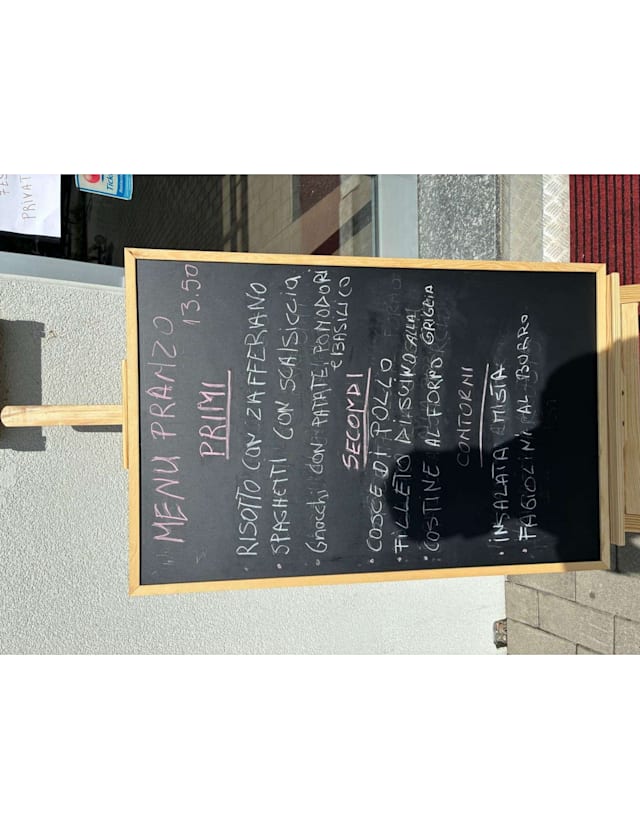 MENU PRANZO
13.50
PRIMI
• RISOTTO CON ZAFFERANO
• SPAGHETTI CON SCALSICCIA
• Gnocchi CON PATATE, POMODORI
e BASILICO
SECONDI
• COSCE DI POLLO
• FILLETO DI SUINO ALLA
GRIGGIA
• COSTINE AL FORNO
CONTORNI
• INSALATA MISTA
• FAGIOLINI AL BURRO
PRIVAT